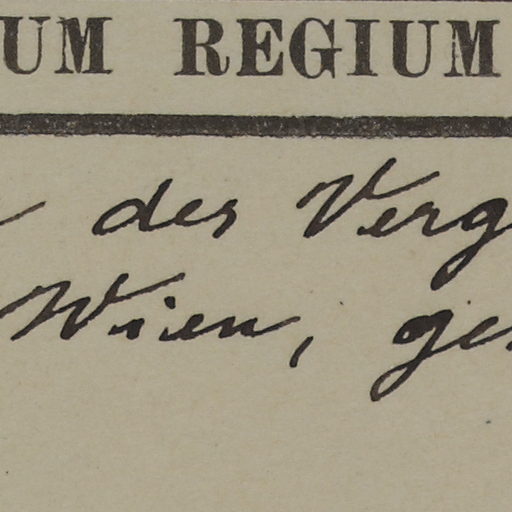 UM REGIUM
des Verg
Wien, ge